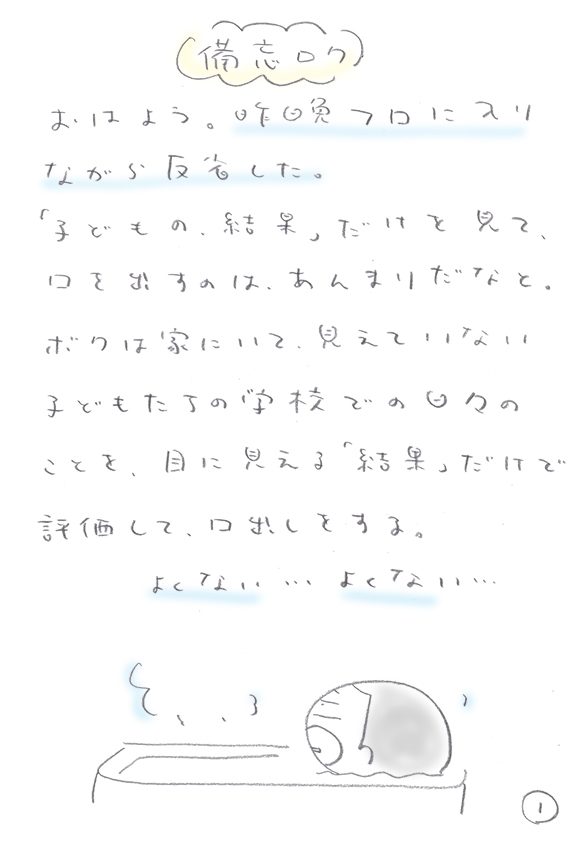 備忘ログ
おはよう。昨日晩フロに入り
ながら反省した。
「子どもの、結果」だけを見て、
口を出すのは、あんまりだなと。
ボクは家にいて、見えていない
子どもたちの学校での日々の
ことを、目に見える「結果」だけで
評価して、口出しをする。
よくない… よくない…
1